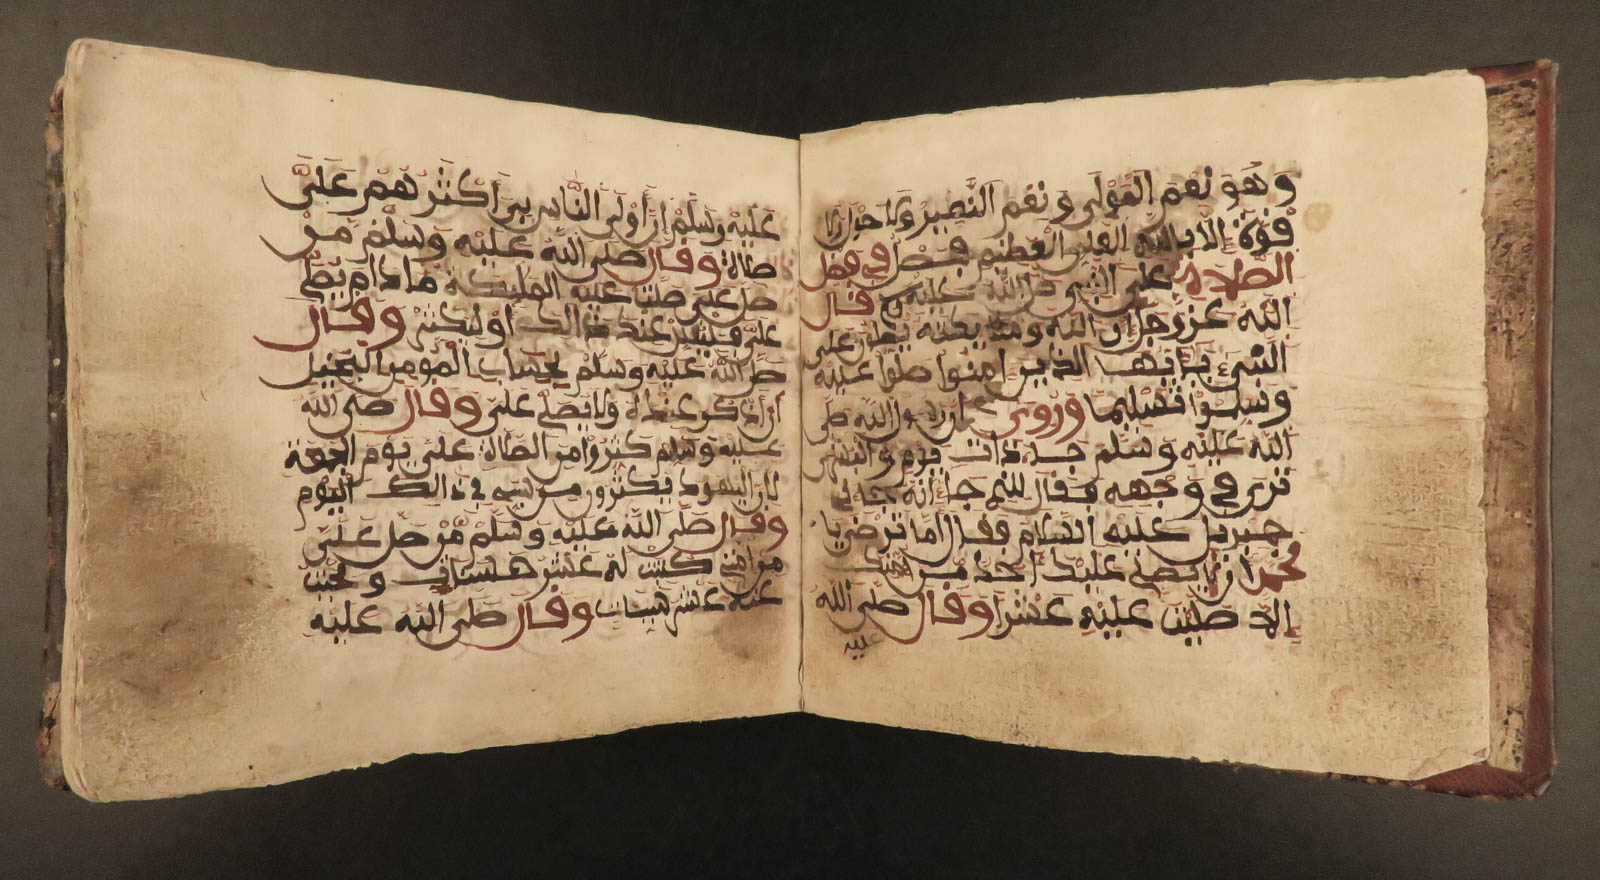 وهو نعم المولى ونعم النصير ولا حول ولا
قوة إلا بالله العلي العظيم فصل في فضل
الصلاة على النبي صلى الله عليه وسلم قال
الله عز وجل ان الله وملائكته يصلون على
النبي يأيها الذين امنوا صلوا عليه
وسلموا تسليما وروي ان رسول الله صلى
الله عليه وسلم جاء ذات يوم والبشرى
ترى في وجهه فقال إنه جاءني
جبريل عليه السلام فقال أما ترضى يا
محمد ان لا يصلي عليك احد من امتك
إلا صليت عليه عشرا وقال صلى الله
عليه
عليه وسلم إن أولى الناس بي أكثرهم علي
صلاة وقال صلى الله عليه وسلم من
صلى علي صلت عليه المليكة ما دام يصلي
علي فليقلل عند ذالك او ليكثر وقال
صلى الله عليه وسلم بحسب المومن البخل
أن أذكر عنده ولا يصلي علي وقال صلى الله
عليه وسلم كثروا من الصلاة علي يوم الجمعة
لان اليهود يكثرون من سبي في ذالك اليوم
وقال صلى الله عليه وسلم من صلى علي
من امتي كتبت له عشر حسنات ومحيت
عنه عشر سيات وقال صلى الله عليه